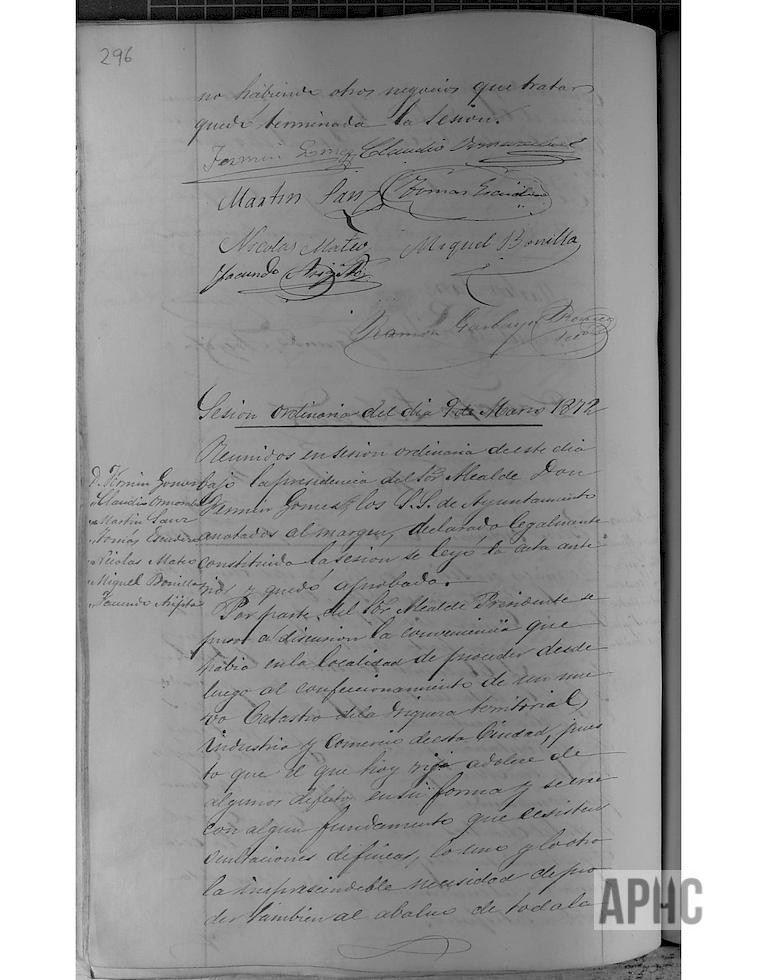 296
no habiendo otros negocios que tratar
quedó terminada la sesion.
Fermin Gomez Claudio
Martin Sanz Tomás Escudero
Nicolas Mateo Miguel Bonilla
Facundo Arijita
Ramon Garbayo
Sesion ordinaria del dia 9 de Marzo 1872
D. Fermin Gomez
Claudio
Martin Sanz
Tomás Escudero
Nicolas Mateo
Miguel Bonilla
Facundo Arijita
Reunidos en sesion ordinaria de este dia
bajo la presidencia del Sor Alcalde Don
Fermin Gomez los S.S. de Ayuntamiento
anotados al margen, declarada legalmente
constituida la sesion se leyó la acta ante
rior y quedó aprobada.
Por parte del Sor Alcalde Presidente se
puso a discusion la conveniencia que
habia en la localidad de proceder desde
luego al confeccionamiento de un nue
vo Catastro de la riqueza territorial,
industria y comercio de esta Ciudad, pues
to que el que hoy rije adolece de
algunos defectos en su forma y se cree
con algun fundamento que ecsisten
ocultaciones de fincas, lo uno y lo otro
la imprescindible necesidad de pro
der tambien al abaluo de toda la
APHC